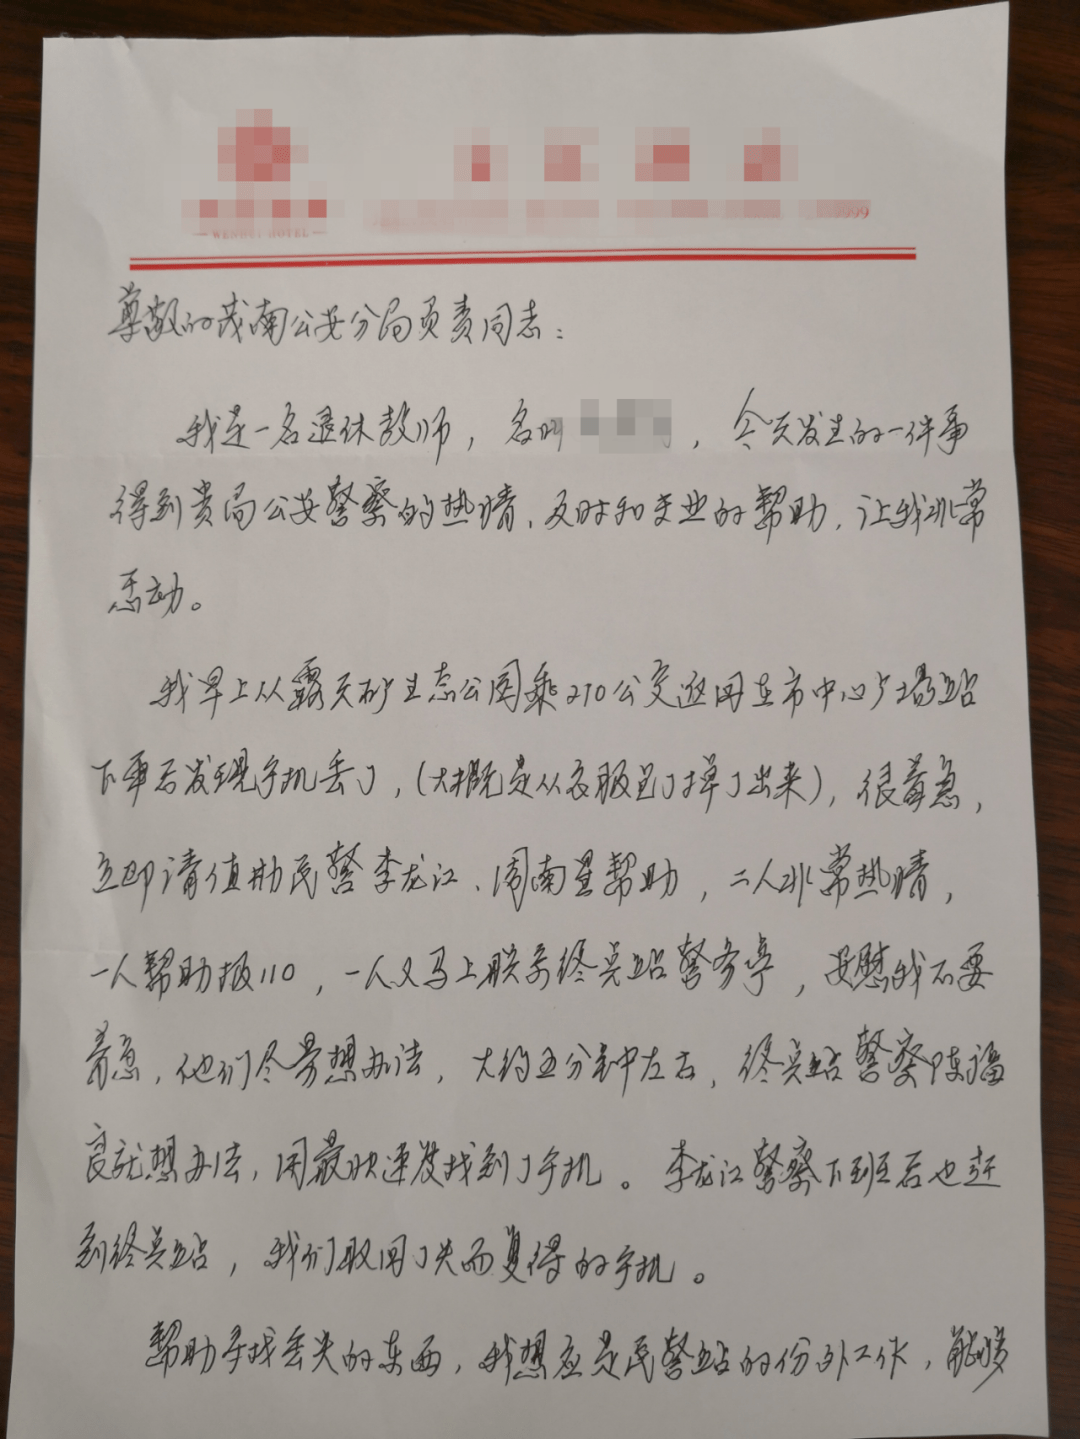 9999
HOTEL
尊敬的茂南公安分局负责同志:
我是一名退休教师,名叫 ,今天发生的一件事
得到贵局公安警察的热情、及时和专业的帮助,让我非常
感动。
我早上从露天矿生态公园乘210公交返回在市中心广场站
下车后发现手机丢了,(大概是从衣服兜了掉了出来),很着急,
立即请值勤民警李龙江、周南星帮助,二人非常热情,
一人帮助报110,一人又马上联系终点站警务亭,安慰我不要
着急,他们尽量想办法,大约五分钟左右,终点站警察陈福
良就想办法,用最快速度找到了手机。李龙江警察下班后也赶
到终点站,我们取回了失而复得的手机。
帮助寻找丢失的东西,我想应是民警站的份外工作,能够